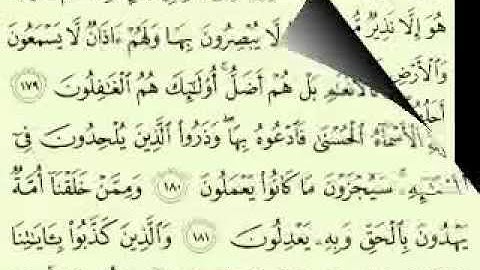 هُوَ إِلَّا نَذِيرٌ لَّا يُبْصِرُونَ بِهَا وَلَهُمْ ءَاذَانٌ لَّا يَسْمَعُونَ
وَٱلْأَرْضِ كَٱلْأَنْعَٰمِ بَلْ هُمْ أَضَلُّ أُو۟لَٰٓئِكَ هُمُ ٱلْغَٰفِلُونَ ١٧٩
ٱلْأَسْمَآءُ ٱلْحُسْنَىٰ فَٱدْعُوهُ بِهَا وَذَرُوا۟ ٱلَّذِينَ يُلْحِدُونَ فِىٓ
أَسْمَٰٓئِهِۦ سَيُجْزَوْنَ مَا كَانُوا۟ يَعْمَلُونَ ١٨٠ وَمِمَّنْ خَلَقْنَآ أُمَّةٌ
يَهْدُونَ بِٱلْحَقِّ وَبِهِۦ يَعْدِلُونَ ١٨١ وَٱلَّذِينَ كَذَّبُوا۟ بِـَٔايَٰتِنَا